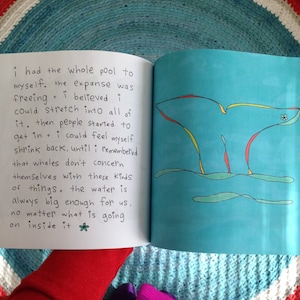 i had the whole pool to
myself. the expanse was
freeing + i believed i
could stretch into all of
it. then people started to
get in + i could feel myself
shrink back, until i remembered
that whales don't concern
themselves with these kinds
of things. the water is
always big enough for us.
no matter what is going
on inside it